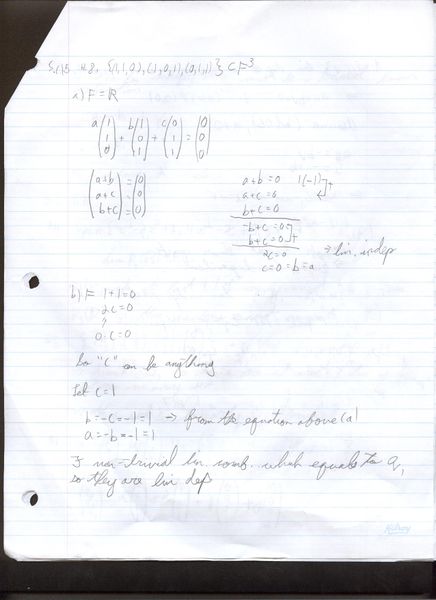 §1.5 #8. {(1,1,0),(1,0,1),(0,1,1)} ⊂ F³
a) F = ℝ
a(1 1 0) + b(1 0 1) + c(0 1 1) = (0 0 0)
(a+b a+c b+c) = (0 0 0)
a+b=0 1(-1)
a+c=0
b+c=0
-b+c=0
b+c=0
2c=0
c=0=b=a
⇒ lin. indep
b) F 1+1=0
2c=0
0·c=0
So "c" can be anything
Let c=1
b=-c=-1=1 → from the equation above (a)
a=-b=-1=1
∃ non-trivial lin. comb. which equals to 0,
so they are lin dep